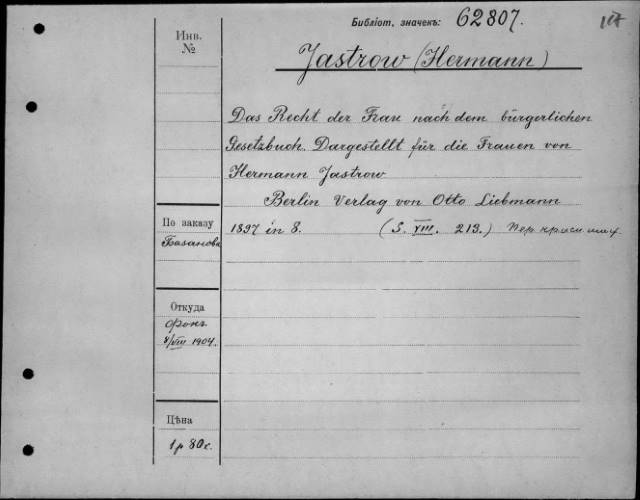 Библіот. значекъ: 62807.
Инв.
№
Jastrow (Hermann)
Das Recht der Frau nach dem bürgerlichen
Gesetzbuch. Dargestellt für die Frauen von
Hermann Jastrow
Berlin Verlag von Otto Liebmann
1897 in 8. (S. VIII. 213.)
По заказу
Базанова
Откуда
Фокъ
8/VIII 1904.
Цѣна
1 р 80 с.